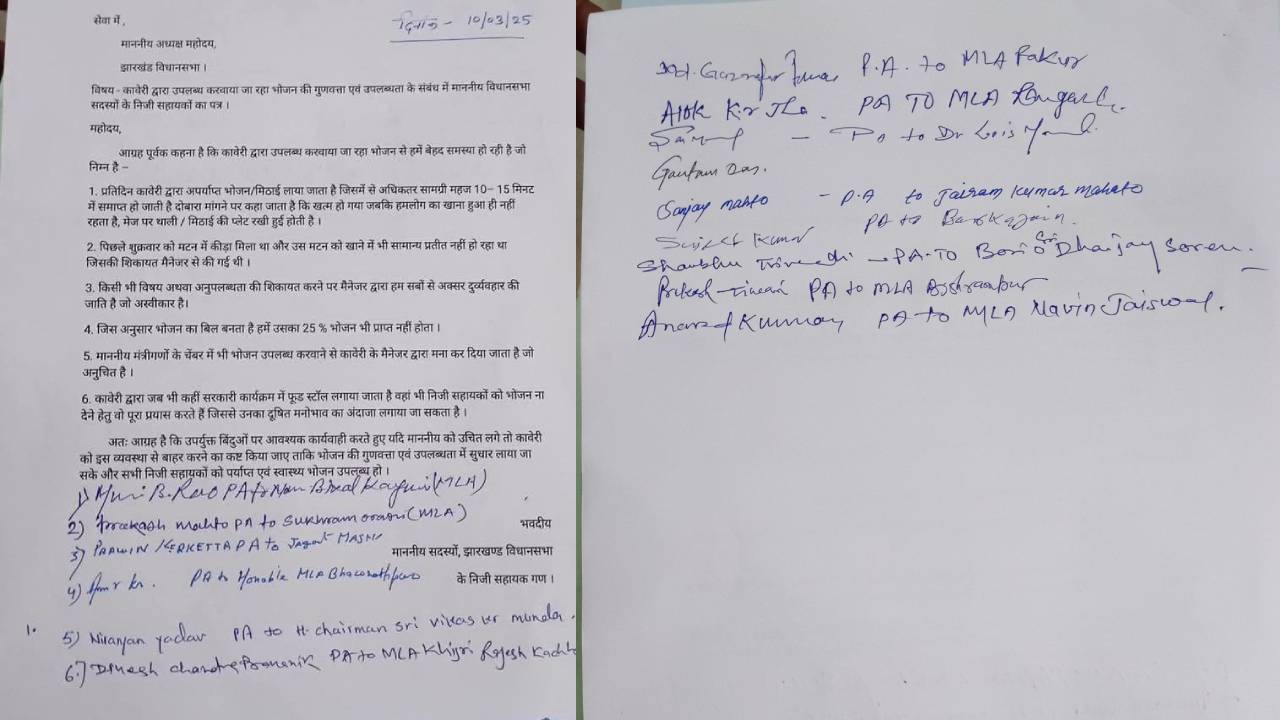 सेवा में ,
दिनांक - 10/03/25
माननीय अध्यक्ष महोदय,
झारखंड विधानसभा ।
विषय - कावेरी द्वारा उपलब्ध करवाया जा रहा भोजन की गुणवत्ता एवं उपलब्धता के संबंध में माननीय विधानसभा
सदस्यों के निजी सहायकों का पत्र ।
महोदय,
आग्रह पूर्वक कहना है कि कावेरी द्वारा उपलब्ध करवाया जा रहा भोजन से हमें बेहद समस्या हो रही है जो
निम्न है –
1. प्रतिदिन कावेरी द्वारा अपर्याप्त भोजन/मिठाई लाया जाता है जिसमें से अधिकतर सामग्री महज 10– 15 मिनट
में समाप्त हो जाती है दोबारा मांगने पर कहा जाता है कि खत्म हो गया जबकि हमलोग का खाना हुआ ही नहीं
रहता है, मेज पर थाली / मिठाई की प्लेट रखी हुई होती है ।
2. पिछले शुक्रवार को मटन में कीड़ा मिला था और उस मटन को खाने में भी सामान्य प्रतीत नहीं हो रहा था
जिसकी शिकायत मैनेजर से की गई थी ।
3. किसी भी विषय अथवा अनुपलब्धता की शिकायत करने पर मैनेजर द्वारा हम सबों से अक्सर दुर्व्यवहार की
जाति है जो अस्वीकार है।
4. जिस अनुसार भोजन का बिल बनता है हमें उसका 25 % भोजन भी प्राप्त नहीं होता ।
5. माननीय मंत्रीगणों के चेंबर में भी भोजन उपलब्ध करवाने से कावेरी के मैनेजर द्वारा मना कर दिया जाता है जो
अनुचित है ।
6. कावेरी द्वारा जब भी कहीं सरकारी कार्यक्रम में फूड स्टॉल लगाया जाता है वहां भी निजी सहायकों को भोजन ना
देने हेतु वो पूरा प्रयास करते हैं जिससे उनका दूषित मनोभाव का अंदाजा लगाया जा सकता है ।
अतः आग्रह है कि उपर्युक्त बिंदुओं पर आवश्यक कार्यवाही करते हुए यदि माननीय को उचित लगे तो कावेरी
को इस व्यवस्था से बाहर करने का कष्ट किया जाए ताकि भोजन की गुणवत्ता एवं उपलब्धता में सुधार लाया जा
सके और सभी निजी सहायकों को पर्याप्त एवं स्वास्थ्य भोजन उपलब्ध हो ।
1) PA to (MLA)
2) Prakash Mahto PA to Sukhram Oraon (MLA)
भवदीय
3) PRAWIN KERKETTA PA to Jagat
माननीय सदस्यों, झारखण्ड विधानसभा
4) PA to Honable MLA Bhawanathpur
के निजी सहायक गण ।
1.
5) Niranjan yadav PA to H. chairman sri vikas kr munda.
6.) Dinesh chandra PA to MLA Khijri Rajesh
P.A. to MLA Pakur
Alok Kr Jha. PA TO MLA
PA to Dr
Gautam Das.
Sanjay mahto - P.A to Jairam Kumar mahato
Kumar PA to
Shambhu - PA-TO Borio Sri Dhanjay Soren.
Prakash Tiwari PA to MLA Bishrampur
Anand Kumar PA to MLA Navin Jaiswal.